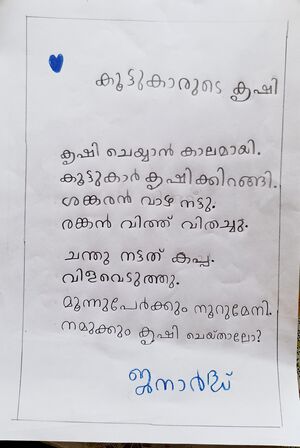 കൂട്ടുകാരുടെ കൃഷി
കൃഷി ചെയ്യാൻ കാലമായി.
കൂട്ടുകാർ കൃഷിക്കിറങ്ങി.
ശങ്കരൻ വാഴ നട്ടു.
രങ്കൻ വിത്ത് വിതച്ചു.
ചന്തു നട്ടത് കപ്പ.
വിളവെടുത്തു.
മൂന്നുപേർക്കും നൂറുമേനി.
നമുക്കും കൃഷി ചെയ്താലോ?